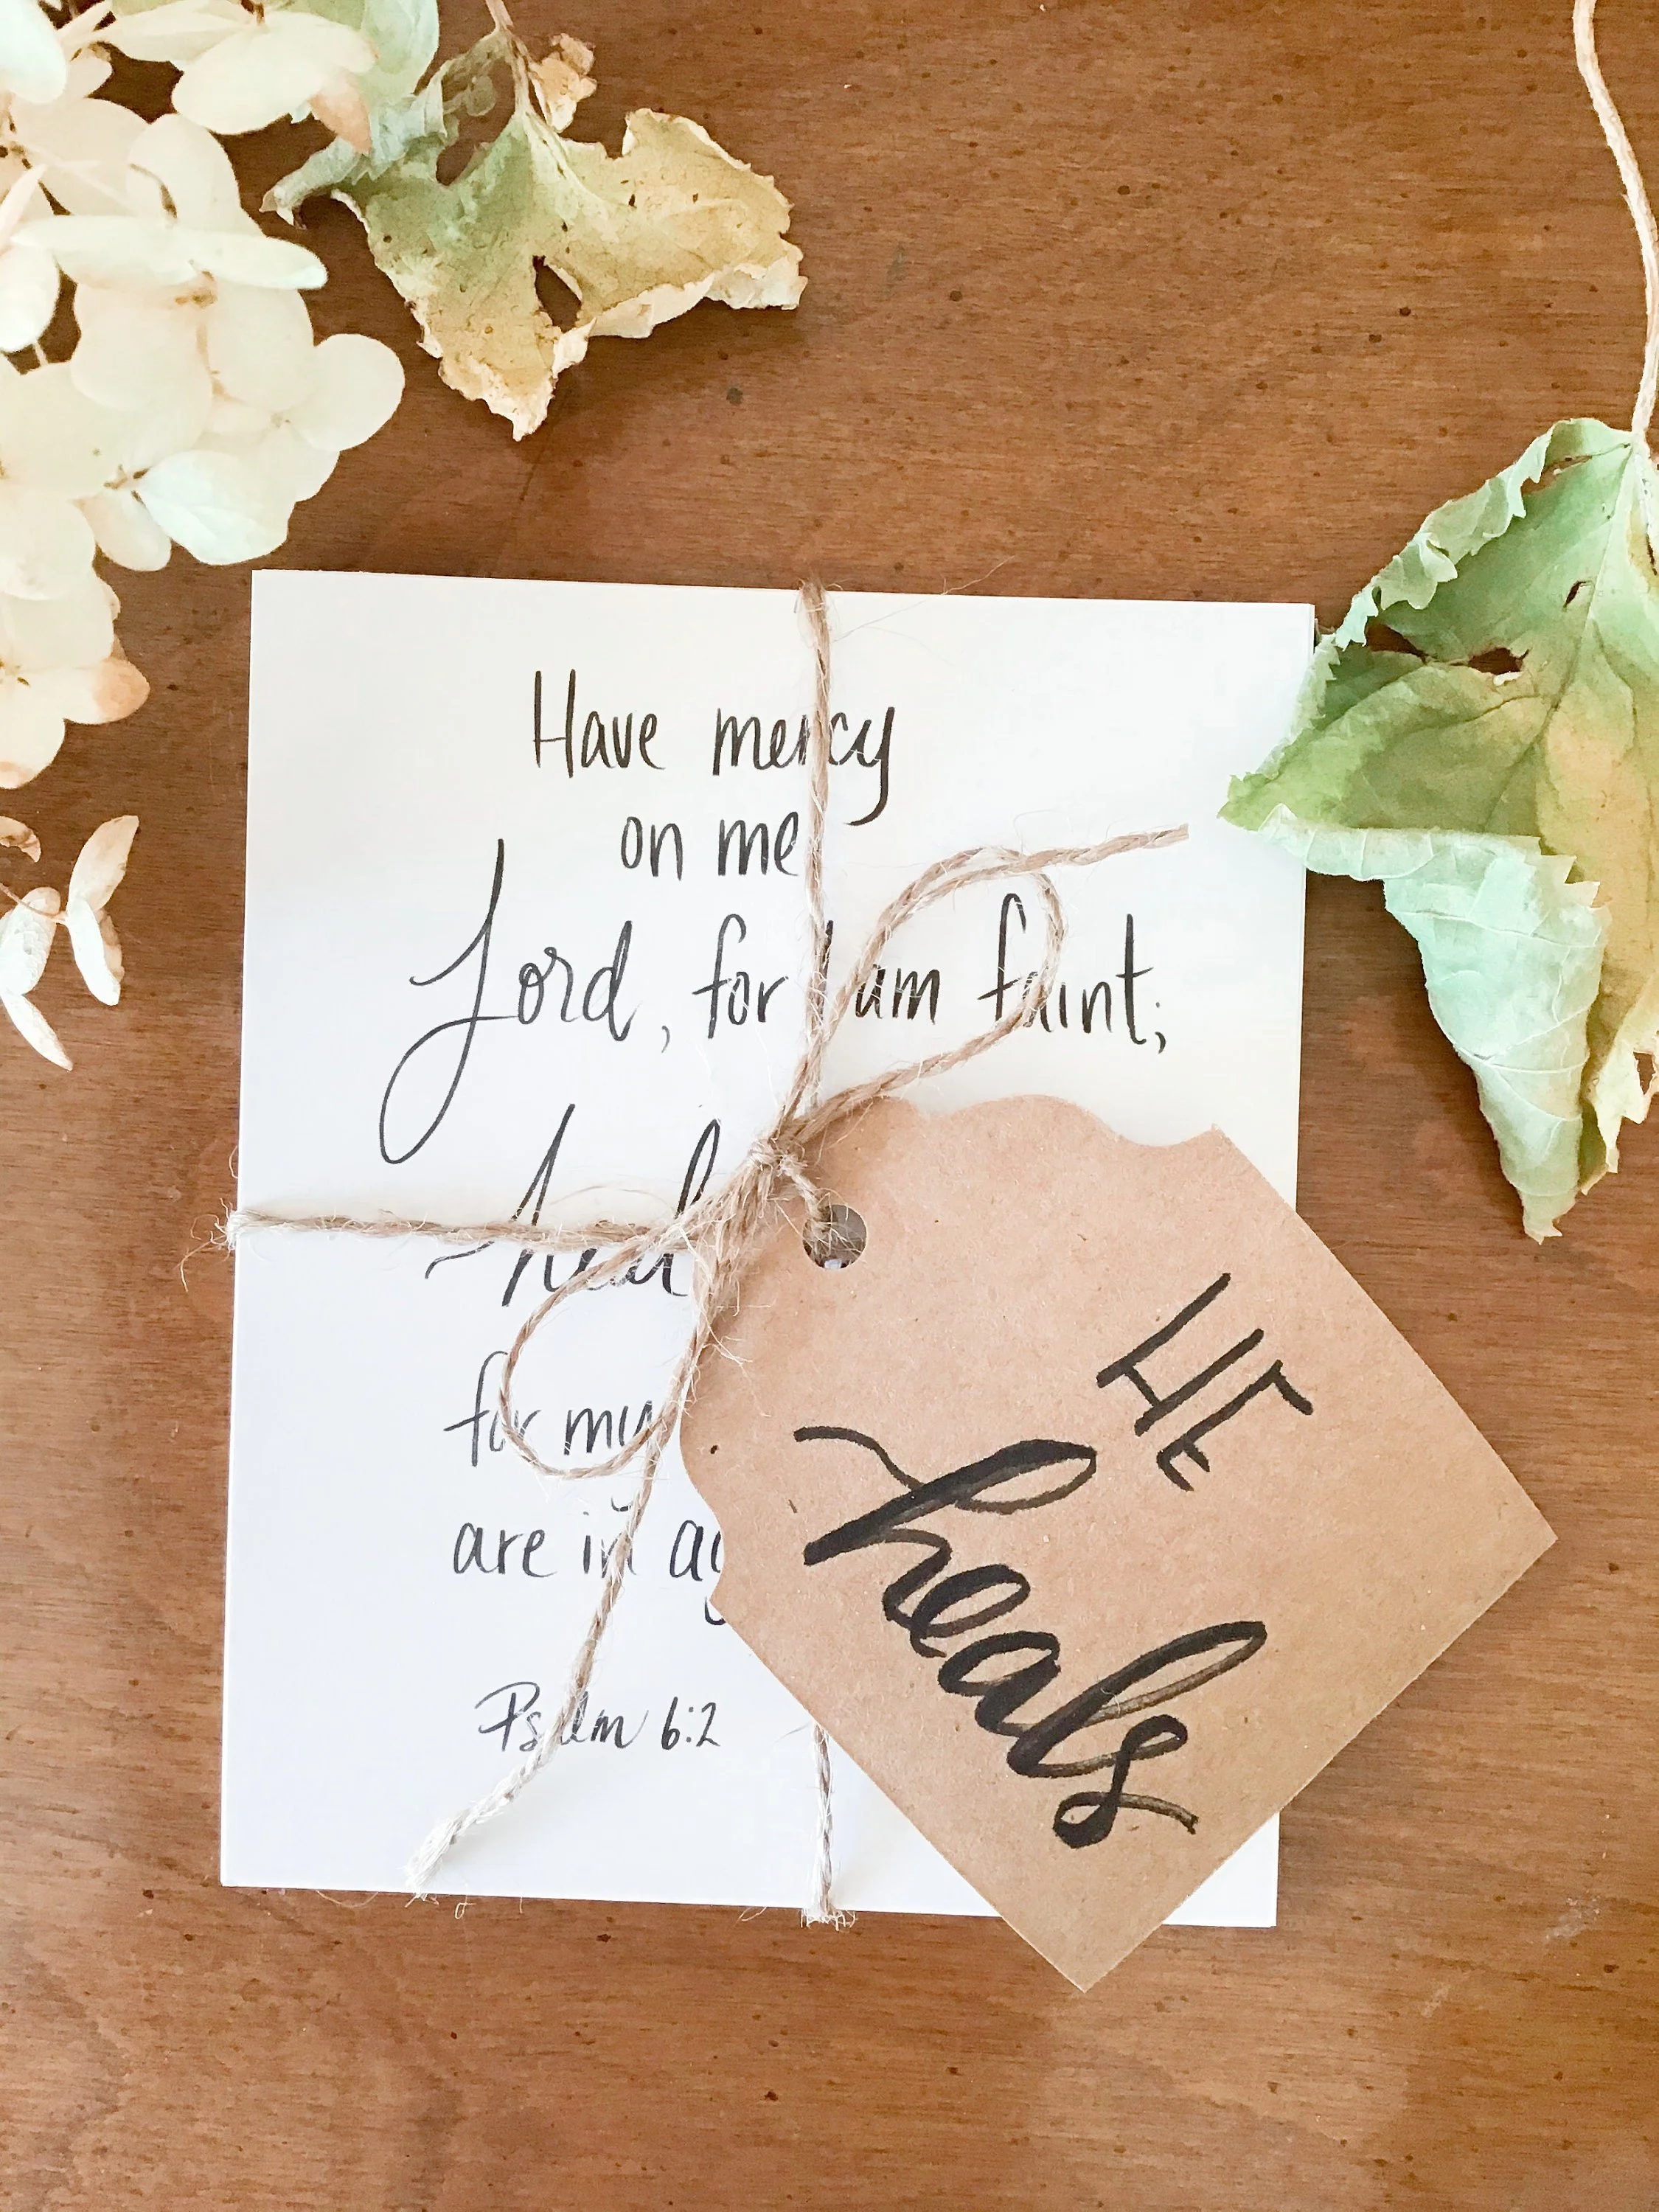 Have mercy
on me
Lord, for I am faint;
heal
for my
are in
Psalm 6:2
HE
heals